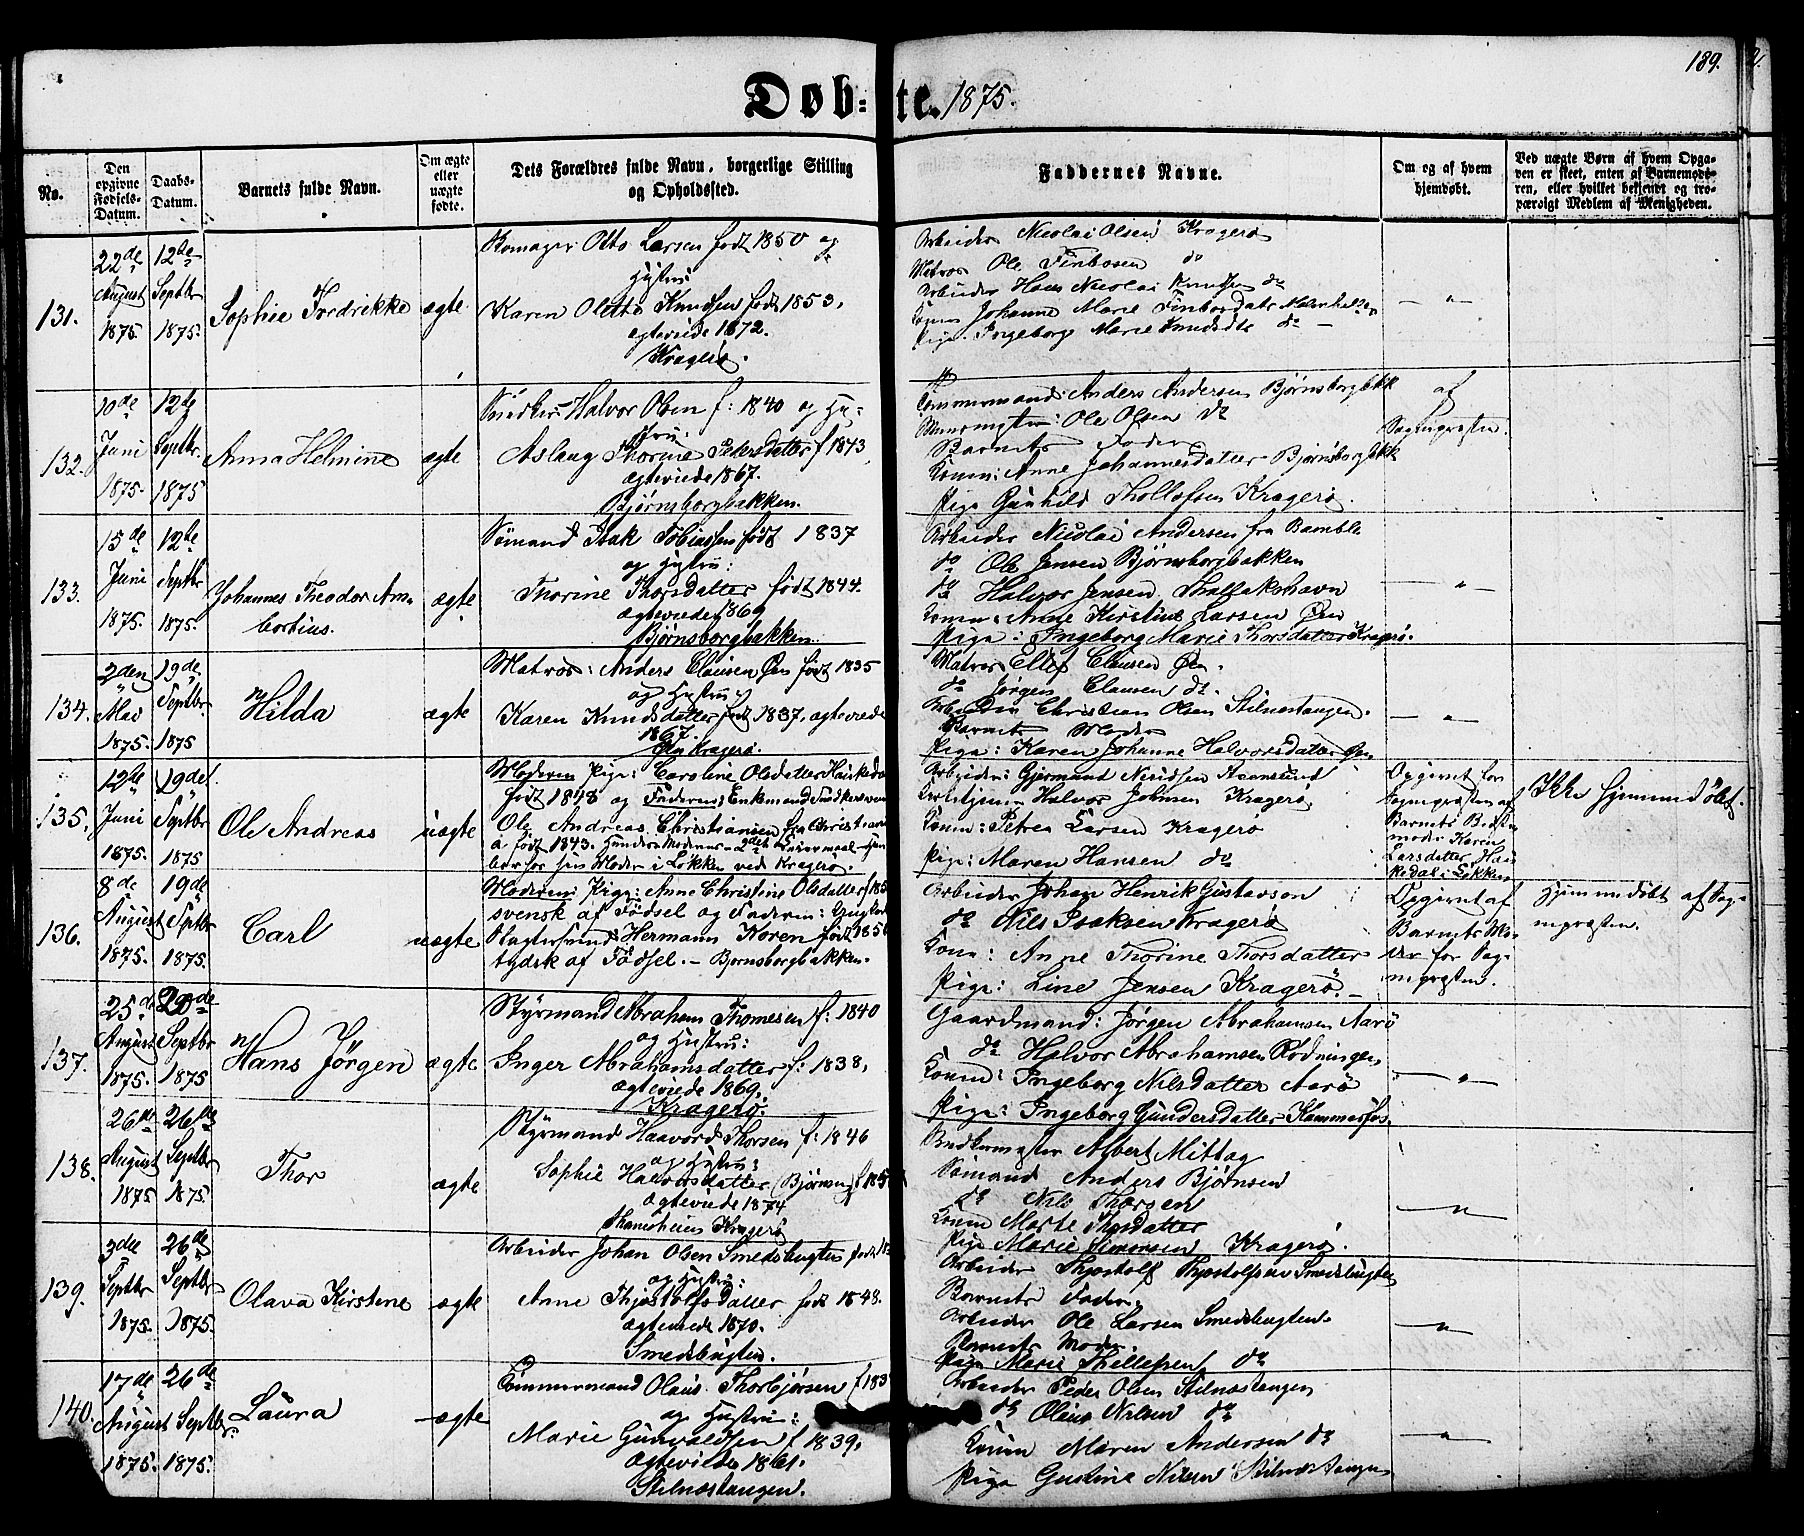 189.
Døb-te. 1875.
No.
Den opgivne Fødsels-Datum.
Daabs-Datum.
Barnets fulde Navn.
Om ægte eller uægte fødte.
Dets Forældres fulde Navn, borgerlige Stilling og Opholdssted.
Faddernes Navne.
Om og af hvem hjemdøbt.
Ved uægte Børn af hvem Opgaven er skeet, enten af Barnemoderen, eller hvilket bekjendt og troværdigt Medlem af Menigheden.
131.
22de August 1875.
12te Septbr 1875.
Sophie Fredrikke
ægte
Otto Larsen født 1850 og
Hustru
Karen Oletta Knudsen født 1853,
ægteviede 1872.
Kragerø.
Arbeider Nicolai Olsen Kragerø
Matros Ole Finbosen do
Arbeider Hans Nicolai Knudsen do
Konen Johanne Marie
Pige Ingeborg Marie do
— " —
132.
10de Juni 1875.
12te Septbr. 1875
Anna Helmine
ægte
Snedker Halvor Olsen f: 1840 og Hustru:
Aslaug Thorine Petersdatter f 1843,
ægteviede 1867.
Bjørnsborgbakken.
Tømmermand: Anders Andersen Bjørnsborgbkk
Ole Olsen do
Barnets Fader
Konen: Anne Johannesdatter Bjørnsborgbkk
Pige Gunhild Thollefsen Kragerø.
af
Sognepræsten.
133.
15de Juni 1875.
12te Septbr 1875.
Johannes Theodor Am-
bortius.
ægte
Sømand Isak Tobiassen født 1837
og Hustru:
Thorine Thorsdatter født 1844.
ægteviede 1869
Bjørnsborgbakken.
Arbeider Nicolai Andersen fra Bamble
do Ole Jensen Bjørnsborgbakken
do Halvor Jensen Thallakshavn
Konen: Anne Kirstine Larsen Øen
Pige: Ingeborg Marie Thorsdatter Kragerø.
— " —
134.
2den Mai 1875.
19de Septbr. 1875
Hilda
ægte
Matros: Anders Clausen Øen født 1835
og Hustru
Karen Knudsdatter født 1837, ægteviede
1867.
Øen Kragerø.
Matros Ellef Clausen Øen.
do Jørgen Clausen do.
Arbeider Christian Olsen Stilnestangen.
Barnets Moder
Pige: Karen Johanne Halvorsdatter Øen
— " —
135.
12te Juni 1875.
19de Septbr 1875
Ole Andreas
uægte
Moderen Pige: Caroline Olsdatter Haukedal
født 1848 og Faderen: Enkemand Snedkersvend
Ole Andreas Christiansen fra Christiania
født 1843. Hendes Moderens 2det Leiermaal. Hun
lever hos sin Moder i Løkken ved Kragerø.
Arbeider: Gjermund Nerisen
Halvor Johnsen Kragerø
Konen: Petrea Larsen Kragerø
Pige: Maren Hansen do
Opgivet for
Sognepræsten af
Barnets Bedste-
moder Karen
Larsdatter Hau-
kedal i Løkken
Ikke hjemmedøbt.
136.
8de August 1875.
19de Septbr 1875.
Carl
uægte
Moderen: Pige: Anne Christine Olsdatter
svensk af Fødsel og Faderen: Ungkarl
Slagtersvend Hermann Koren født 1850
tydsk af Fødsel. - Bjørnsborgbakken.
Arbeider Johan Henrik Gustavson
do Nils Isaksen Kragerø
Konen: Anne Thorine Thorsdatter
Pige: Line Jensen Kragerø. -
Opgivet af
Barnets Mo-
der for Sog-
nepræsten.
Hjemmedøbt af Sog-
nepræsten.
137.
25de August 1875.
20de Septbr 1875
Hans Jørgen
ægte
Styrmand Abraham Thomesen f: 1840
og Hustru:
Inger Abrahamsdatter f: 1838,
ægteviede 1869.
Kragerø.
Gaardmand: Jørgen Abrahamsen Aarø
do Halvor Abrahamsen Rødningen,
Konen: Ingeborg Nilsdatter Aarø
Pige: Ingeborg Gundersdatter Kammerfos.
— " —
138.
26de August 1875
26de Septbr 1875.
Thor
ægte
Styrmand Haavord Thorsen f: 1846
og Hustru:
Sophie Halvorsdatter (Bjørnsen) f 185
ægteviede 1874
Kragerø
Albert Mittag
Sømand Anders Bjørnsen
do Nils Thorsen
Konen Marte Thorsdatter
Pige Marie Simonsen Kragerø.
— " —
139.
3die Septbr 1875.
26de Septbr 1875.
Olava Kirstine
ægte
Arbeider Johan Olsen Smedsbugten født 18
og Hustru:
Anne Thjostolfsdatter født 1848.
ægteviede 1870.
Smedsbugten.
Arbeider Thjostolf Thjostolfsen Smedsbugten
Barnets Fader,
Arbeider Ole Larsen Smedsbugten.
Barnets Moder.
Pige Marie Thellefsen do
— " —
140.
17de August 1875.
26de Septbr. 1875.
Laura
ægte
Tømmermand Olaus Thorbjørsen f 183
og Hustru:
Marie Gunvaldsen f 1839,
ægteviede 1861.
Stilnæstangen.
Arbeider Peder Olsen Stilnæstangen
do Olaus Nilsen do
Konen Maren Andersen do
Pige Gustine Nilsen Stilnæstangen
— " —